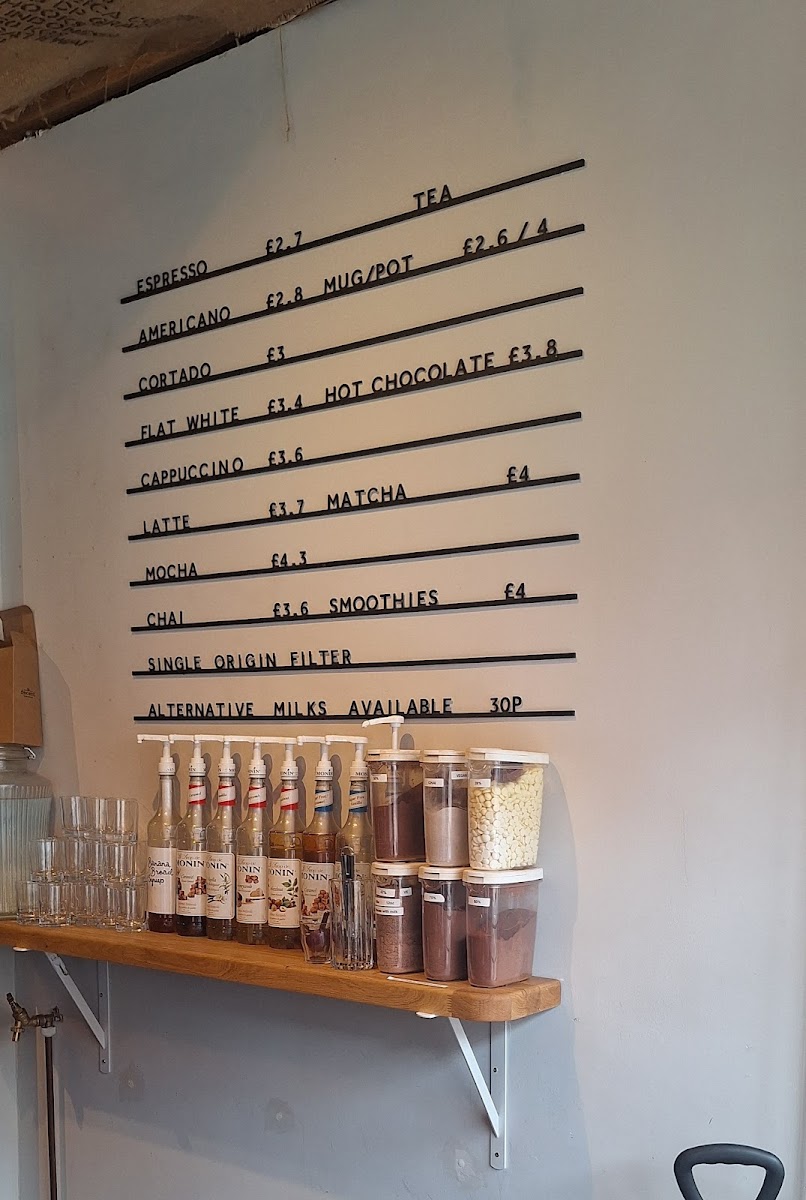 TEA
ESPRESSO £2.7
AMERICANO £2.8 MUG/POT £2.6 / 4
CORTADO £3
FLAT WHITE £3.4 HOT CHOCOLATE £3.8
CAPPUCCINO £3.6
LATTE £3.7 MATCHA £4
MOCHA £4.3
CHAI £3.6 SMOOTHIES £4
SINGLE ORIGIN FILTER
ALTERNATIVE MILKS AVAILABLE 30P
Banana
Bread
MONIN
MONIN
MONIN
MONIN
MONIN